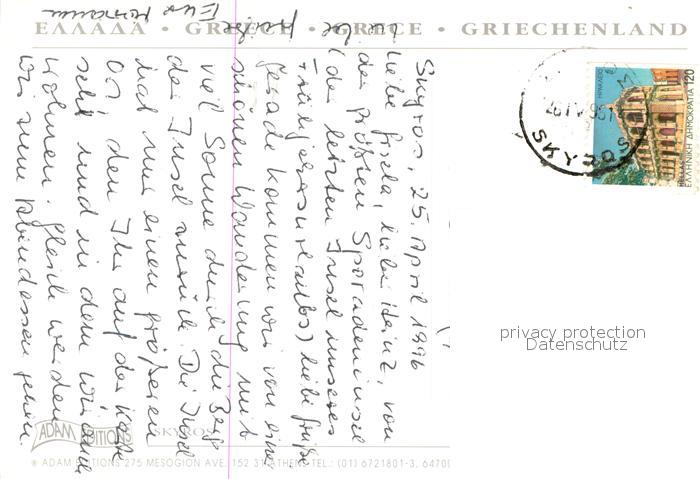 ΕΛΛΑΔΑ • GRECE • GREECE • GRIECHENLAND
Skyros, 25. April 1996
Liebe Gisela, lieber Heinz, von
der größten Sporadeninsel
(der letzten Insel unseres
Frühjahrsurlaubs) liebe Grüße
Gerade kommen wir von einer
schönen Wanderung mit
viel Sonne durch die Berge
der Insel zurück. Die Insel
hat nur einen größeren
Ort, den Ihr auf der Karte
seht und in dem wir auch
wohnen. Gleich werden
wir zum Abendessen gehen.
Eure
ΕΛΛΗΝΙΚΗ ΔΗΜΟΚΡΑΤΙΑ 120
HELLAS
ΗΡΑΚΛΕΙΟ
26 IV 96
SKYROS
privacy protection
Datenschutz
ADAM EDITIONS
SKYROS
® ADAM EDITIONS 275 MESOGION AVE. 152 31 ATHENS TEL.: (01) 6721801-3, 6470